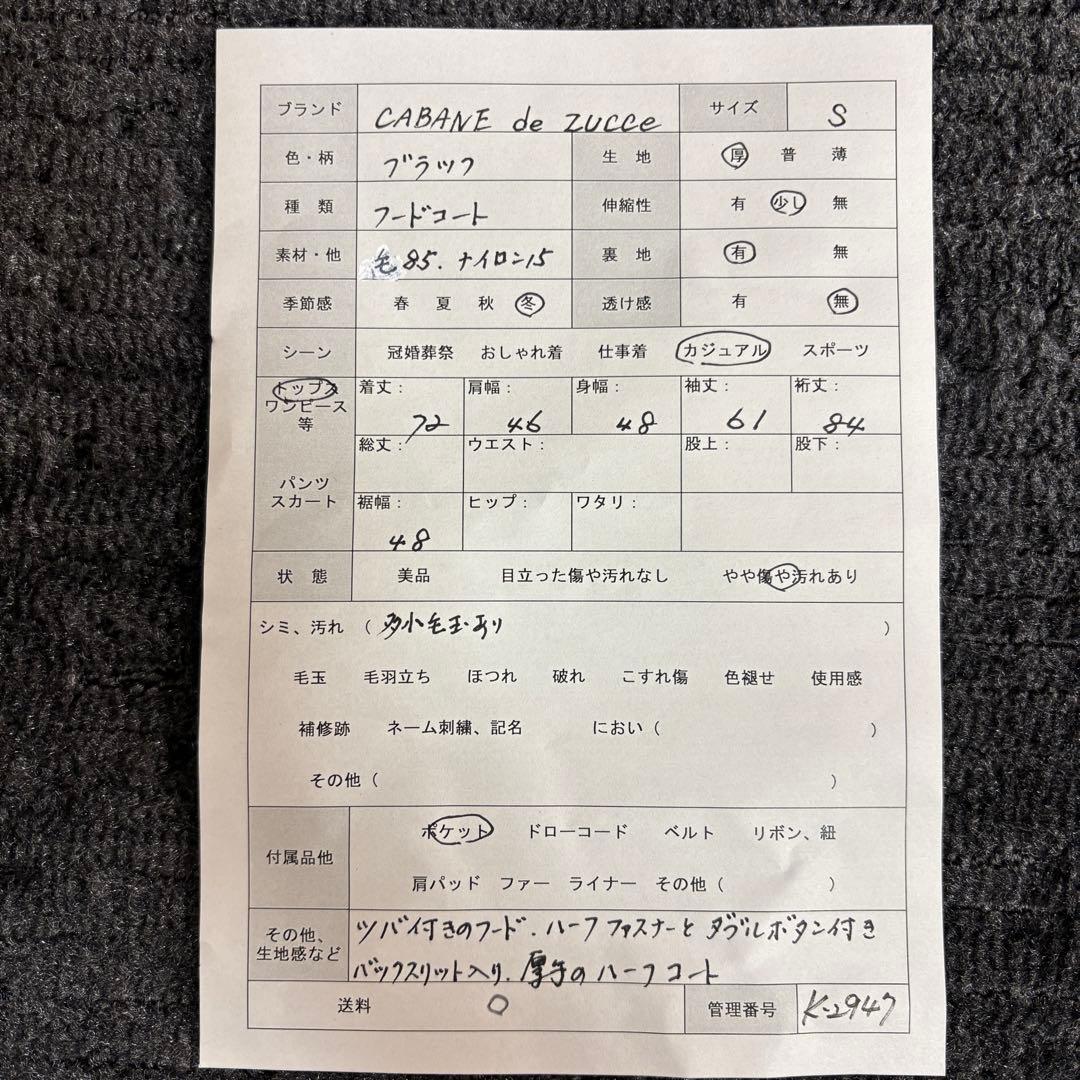 ブランド CABANE de ZUCCe サイズ S
色・柄 ブラック 生 地 厚 普 薄
種 類 フードコート 伸縮性 有 少し 無
素材・他 毛85.ナイロン15 裏 地 有 無
季節感 春 夏 秋 冬 透け感 有 無
シーン 冠婚葬祭 おしゃれ着 仕事着 カジュアル スポーツ
トップス ワンピース 等 着丈: 72 肩幅: 46 身幅: 48 袖丈: 61 裄丈: 84
総丈: ウエスト: 股上: 股下:
パンツ スカート 裾幅: 48 ヒップ: ワタリ:
状 態 美品 目立った傷や汚れなし やや傷や汚れあり
シミ、汚れ ( 多少毛玉あり )
毛玉 毛羽立ち ほつれ 破れ こすれ傷 色褪せ 使用感
補修跡 ネーム刺繍、記名 におい ( )
その他 ( )
付属品他 ポケット ドローコード ベルト リボン、紐
肩パッド ファー ライナー その他 ( )
その他、生地感など ツバ付きのフード.ハーフファスナーとダブルボタン付き
バックスリット入り.厚手のハーフコート
送料 ○ 管理番号 K-2947